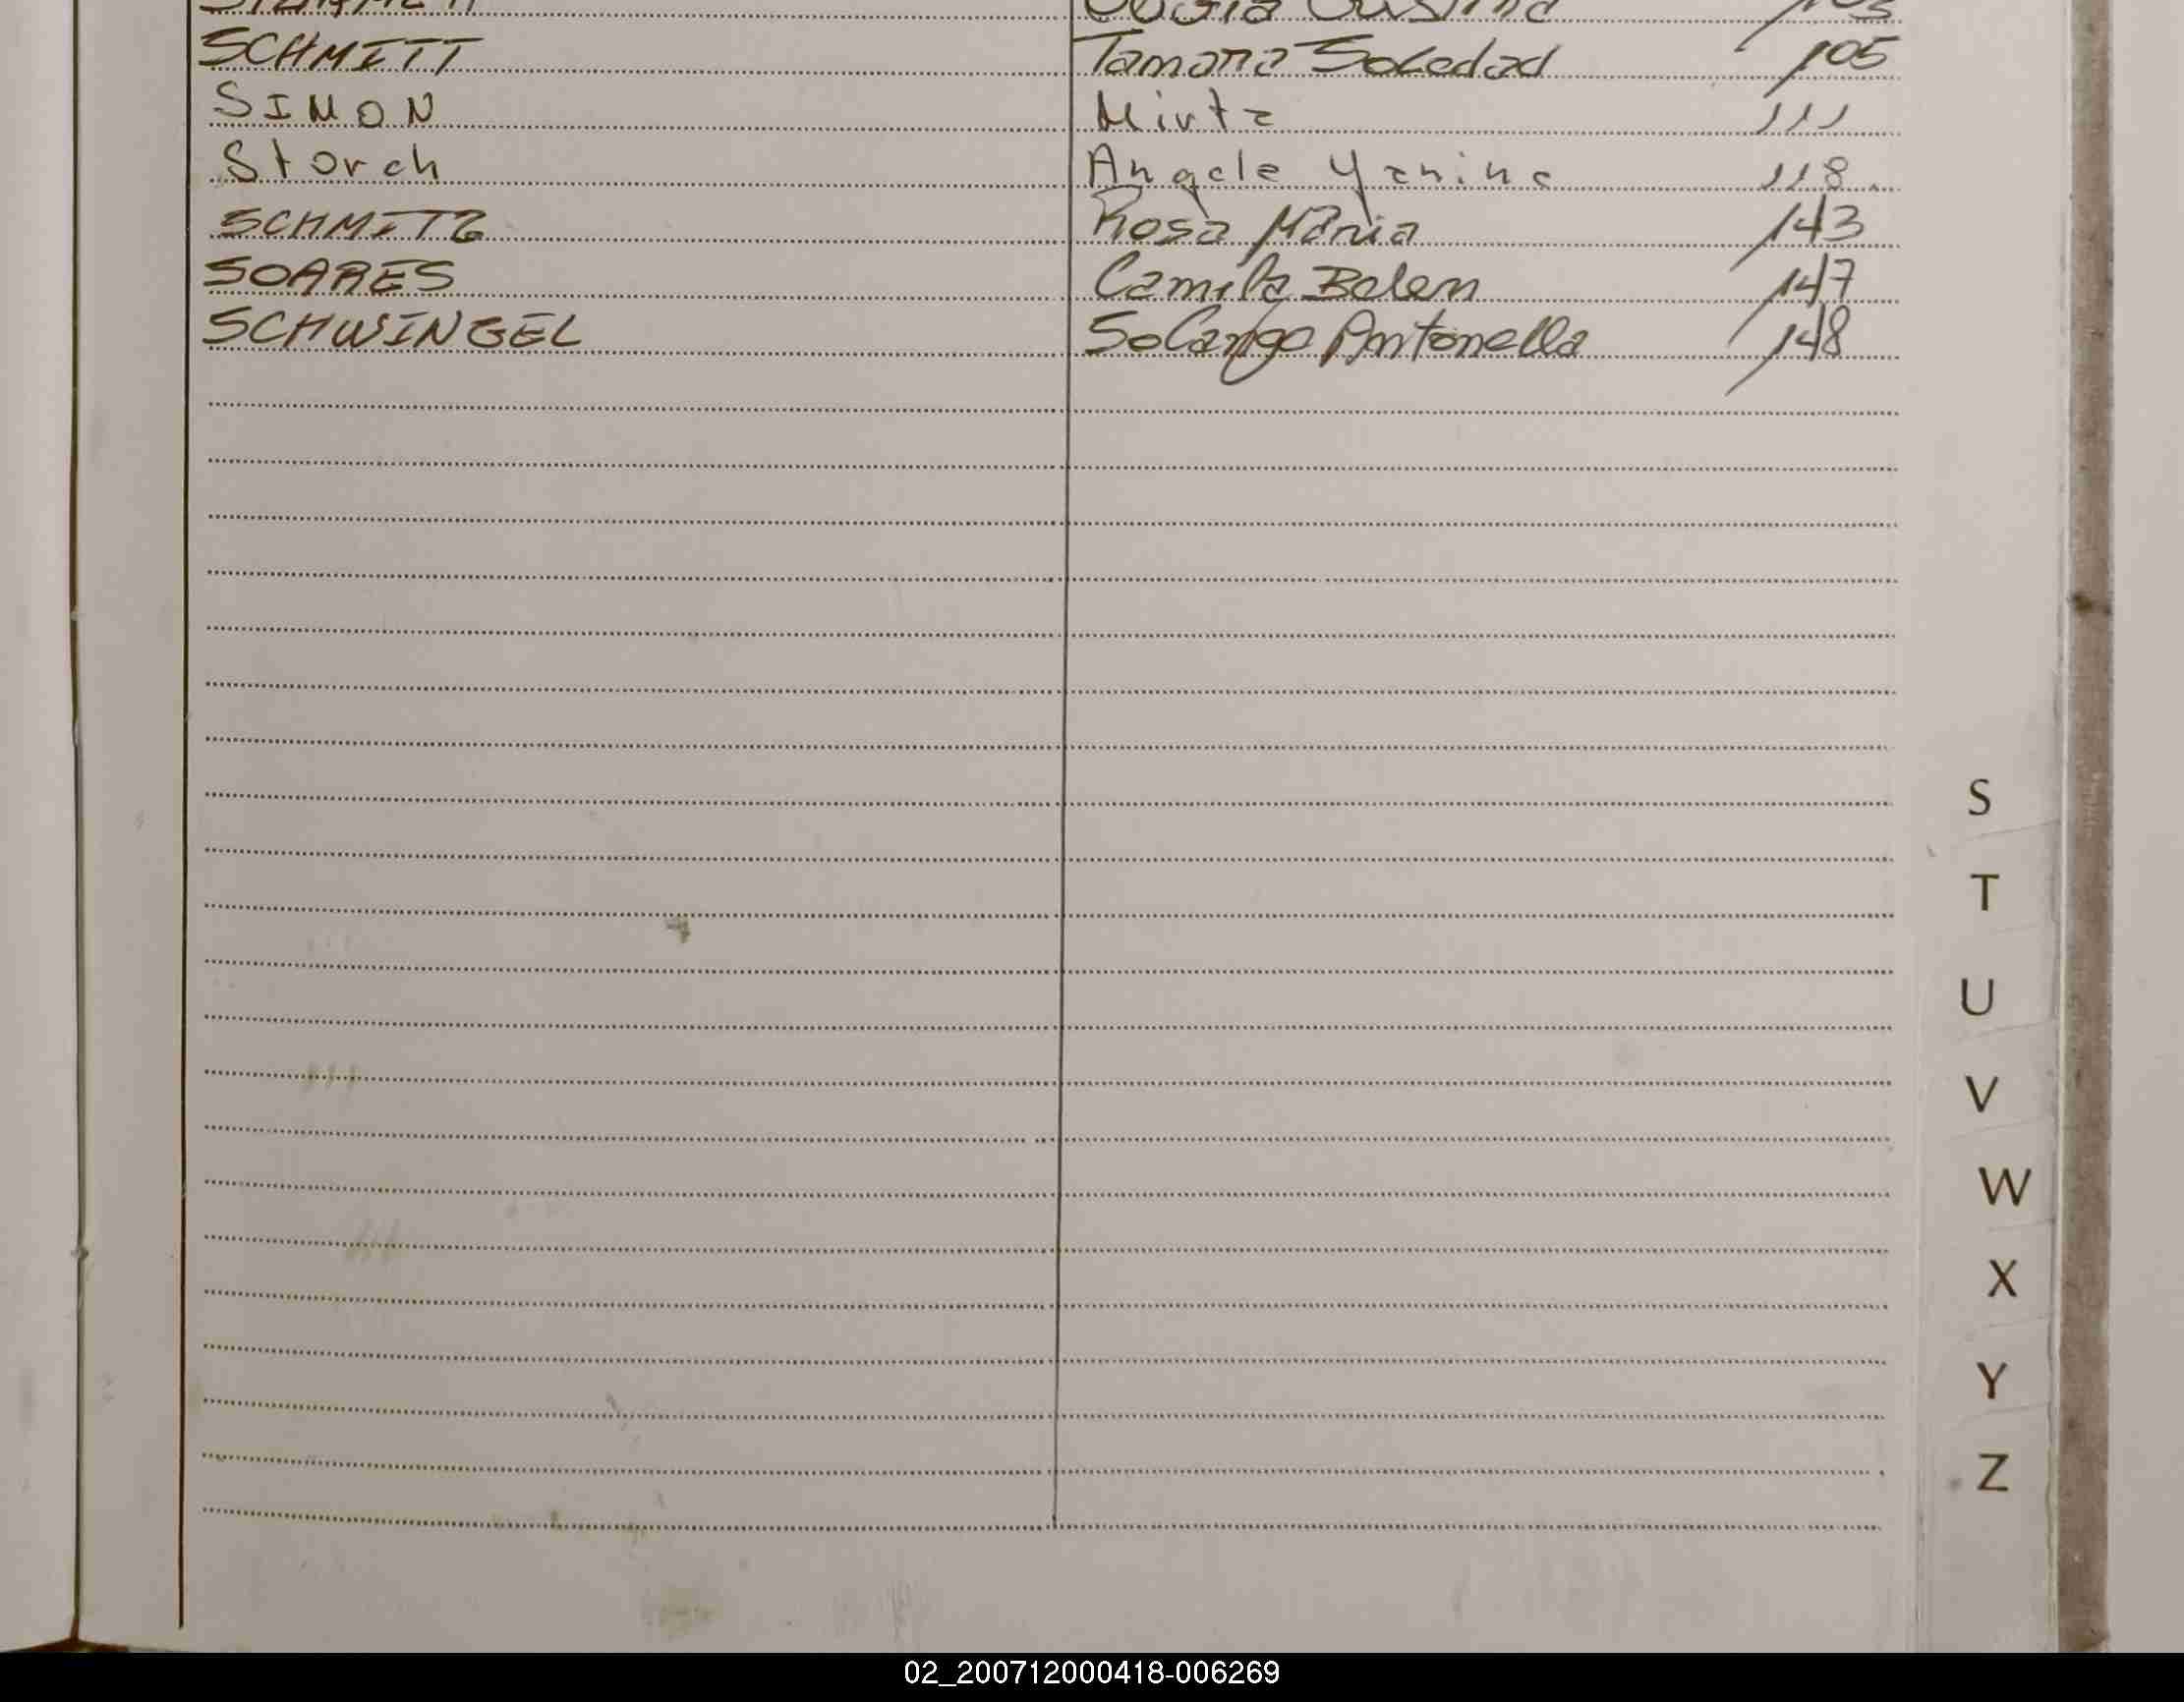 SCHMITT Tamara Soledad 105
SIMON Mirta 111
Storch Angela Yanina 118
SCHMITZ Rosa Maria 143
SOARES Camila Belen 147
SCHWINGEL Solange Antonella 148
S
T
U
V
W
X
Y
Z
02_200712000418-006269